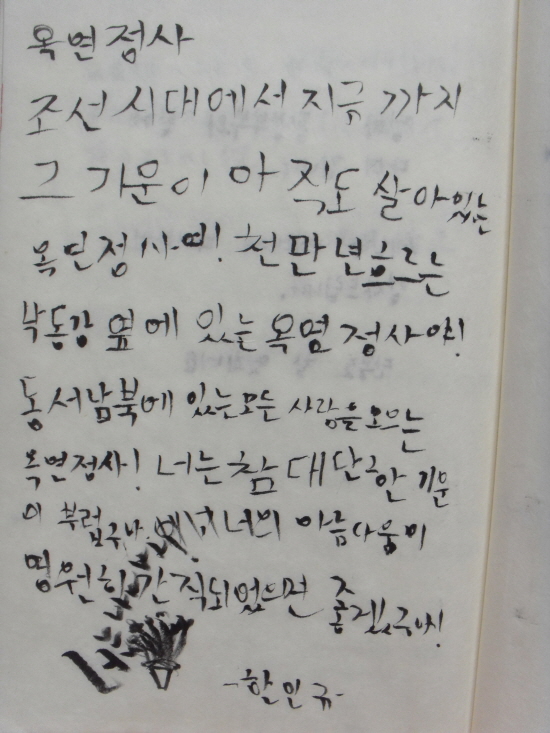 옥연정사
조선시대에서 지금 까지
그 기운이 아직도 살아있는
옥연정사여! 천만년흐르는
낙동강 옆에 있는 옥연정사여!
동서남북에 있는모든 사람을모으는
옥연정사! 너는 참 대단한 기운
이 부럽구나. 너의 아름다움이
영원히 간직되었으면 좋겠구나!
-한인규-